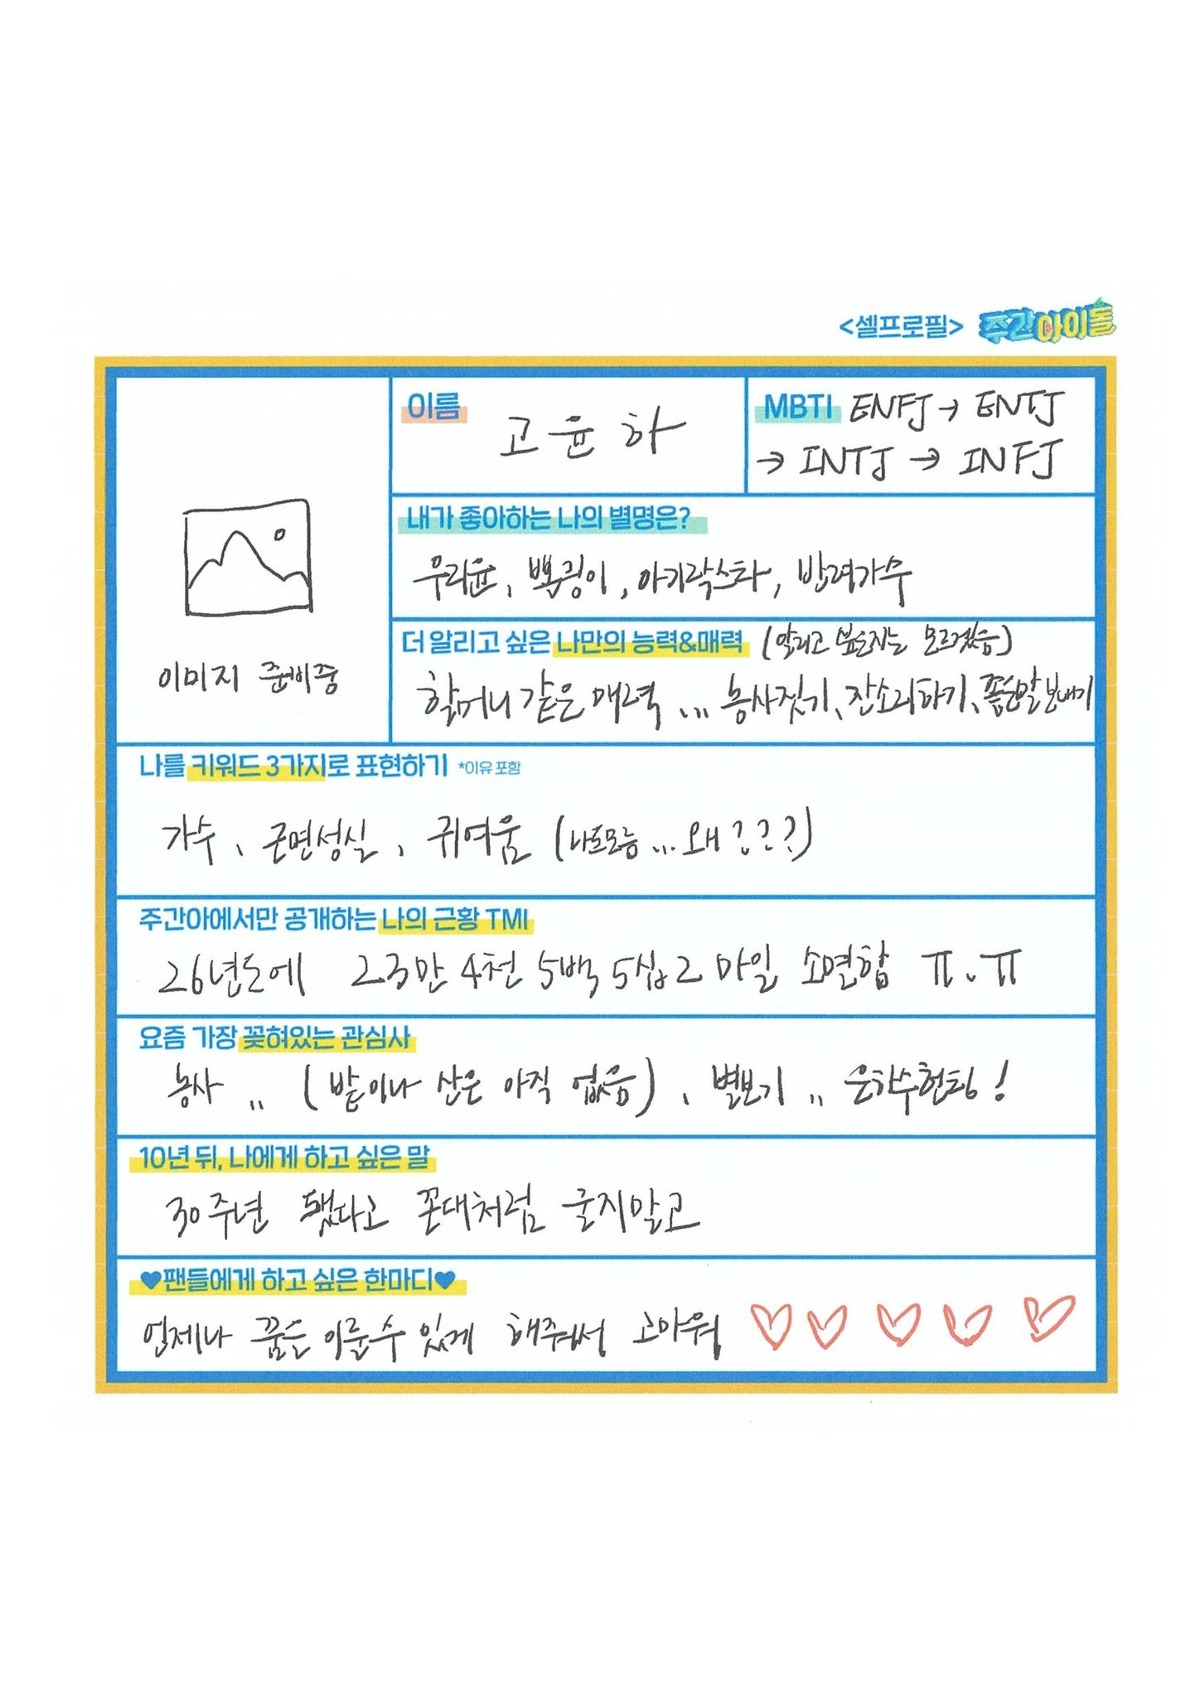 <셀프로필> 주간아이돌
이름 고윤하
MBTI ENFJ → ENTJ
→ INTJ → INFJ
내가 좋아하는 나의 별명은?
우리윤, 뽁링이, 아기락스타, 반려가수
더 알리고 싶은 나만의 능력&매력 (알리고 싶은지는 모르겠음)
할머니 같은 매력 ... 농사짓기, 잔소리하기, 좋은말 보내기
이미지 준비중
나를 키워드 3가지로 표현하기 *이유 포함
가수, 근면성실, 귀여움 (나도모름 ... 왜???)
주간아에서만 공개하는 나의 근황 TMI
26년도에 23만 4천 5백 5십 2 마일 소멸함 ㅠ.ㅠ
요즘 가장 꽂혀있는 관심사
농사 .. (밭이나 산은 아직 없음), 별보기 .. 은하수헌팅!
10년 뒤, 나에게 하고 싶은 말
30주년 됐다고 꼰대처럼 굴지말고
♥팬들에게 하고 싶은 한마디♥
언제나 꿈을 이룰수 있게 해줘서 고마워 ♡♡♡♡♡